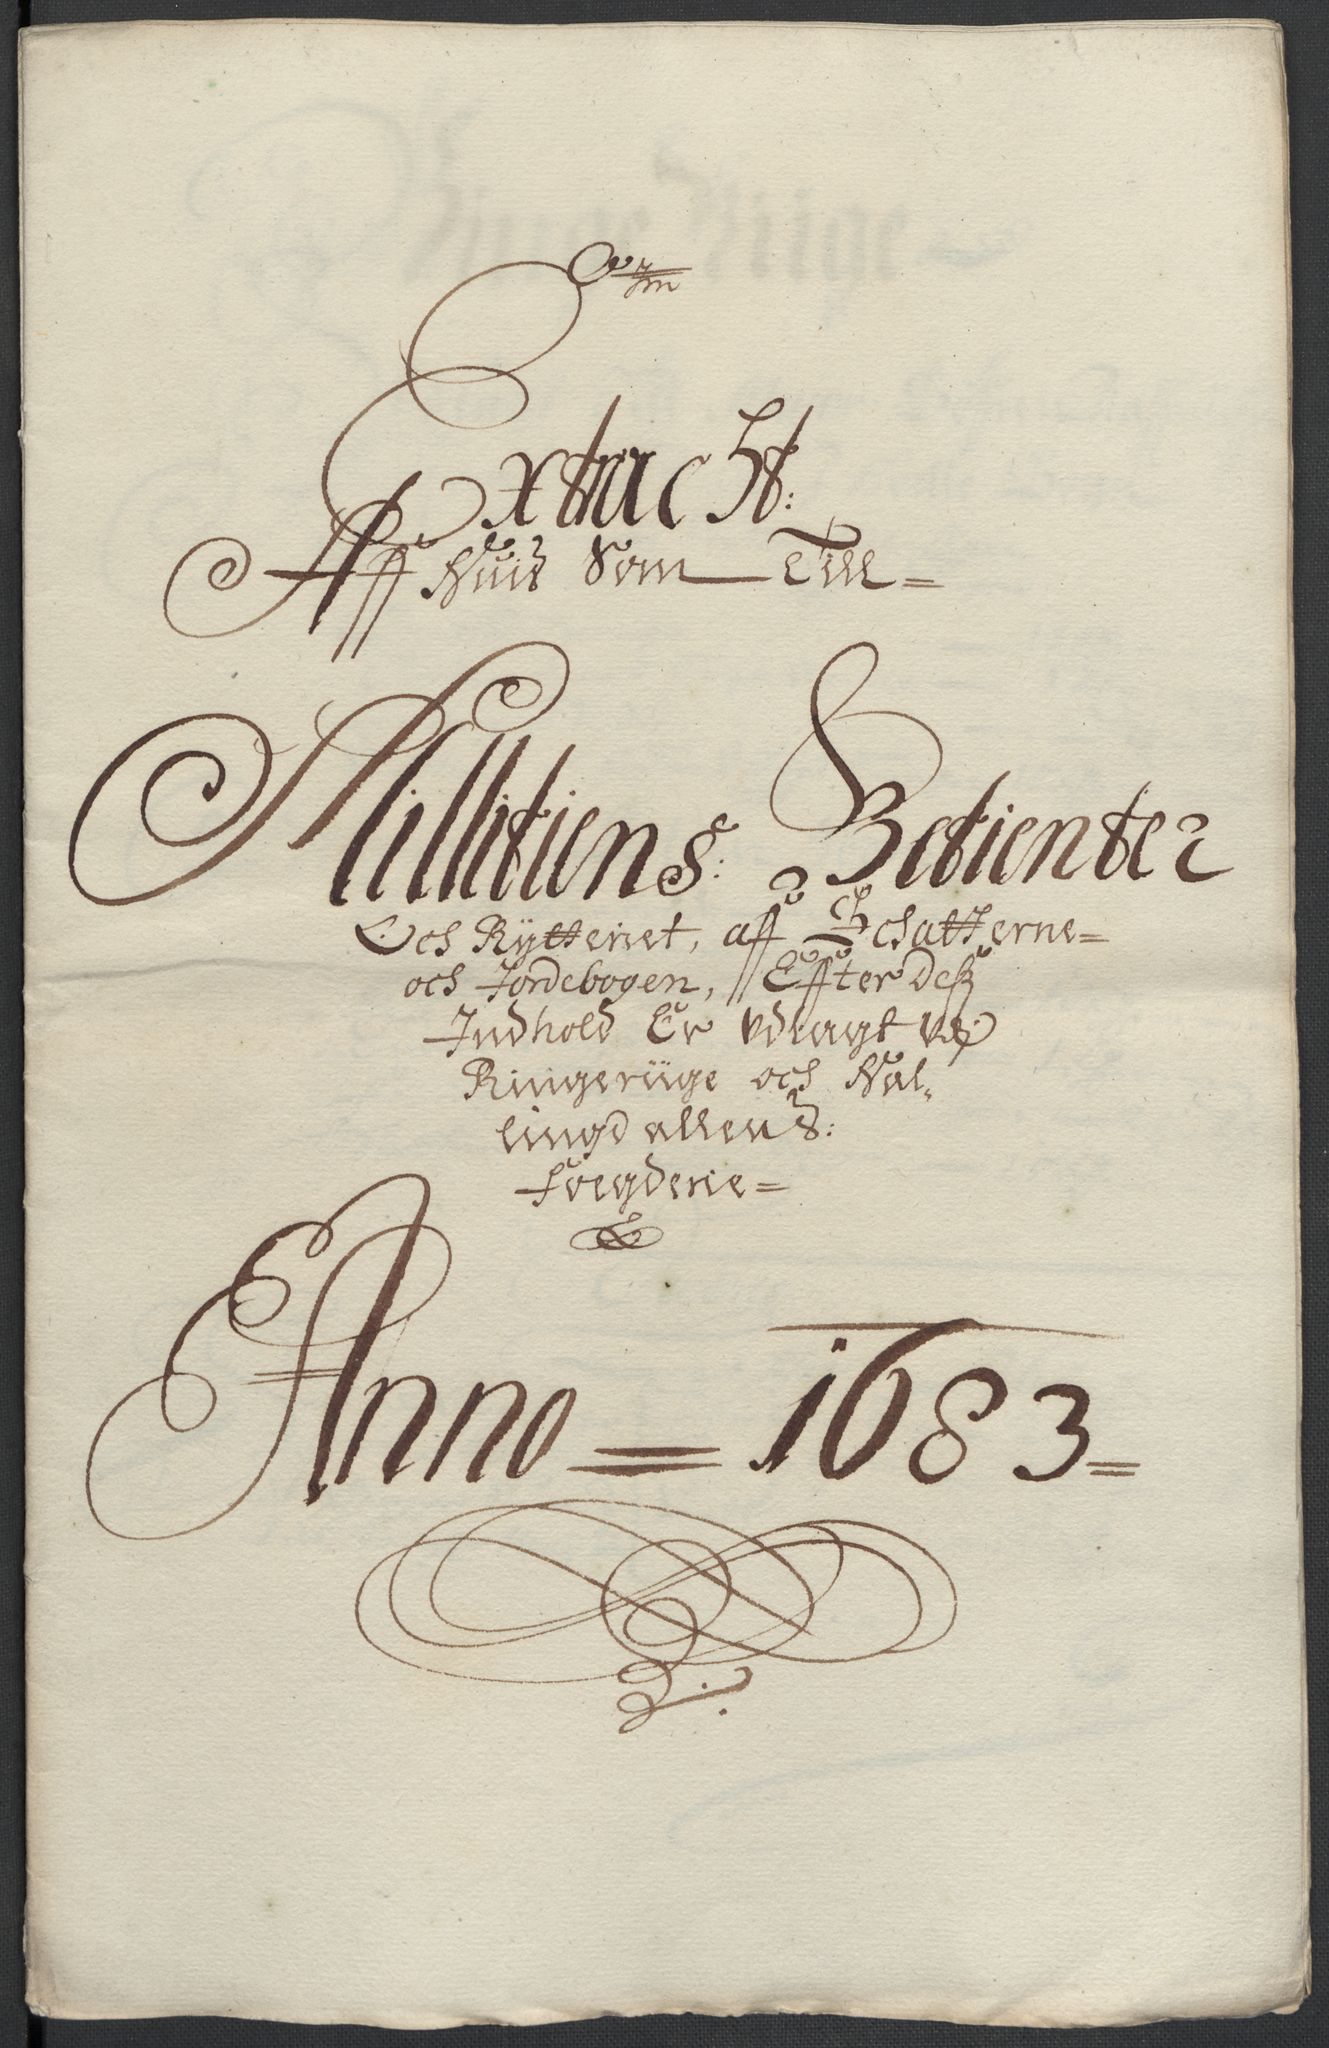 Extracht:
Aff Huis Som Till=
Millitiens: Betienter
Och Rytteriet, aff Schatterne=
och Jordebogen, Effter deß
Indhold Er Udlagt udj
Ringeriige och Hal=
lingdallens:
Foegderie=
Anno = 1683=